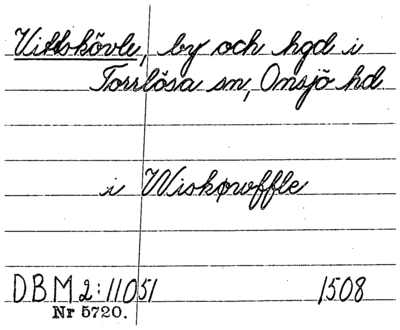 Vittskövle, by och hgd i
Torrlösa sn, Onsjö hd
i Wiskøwffle
DBM 2:11051 1508
Nr 5720.